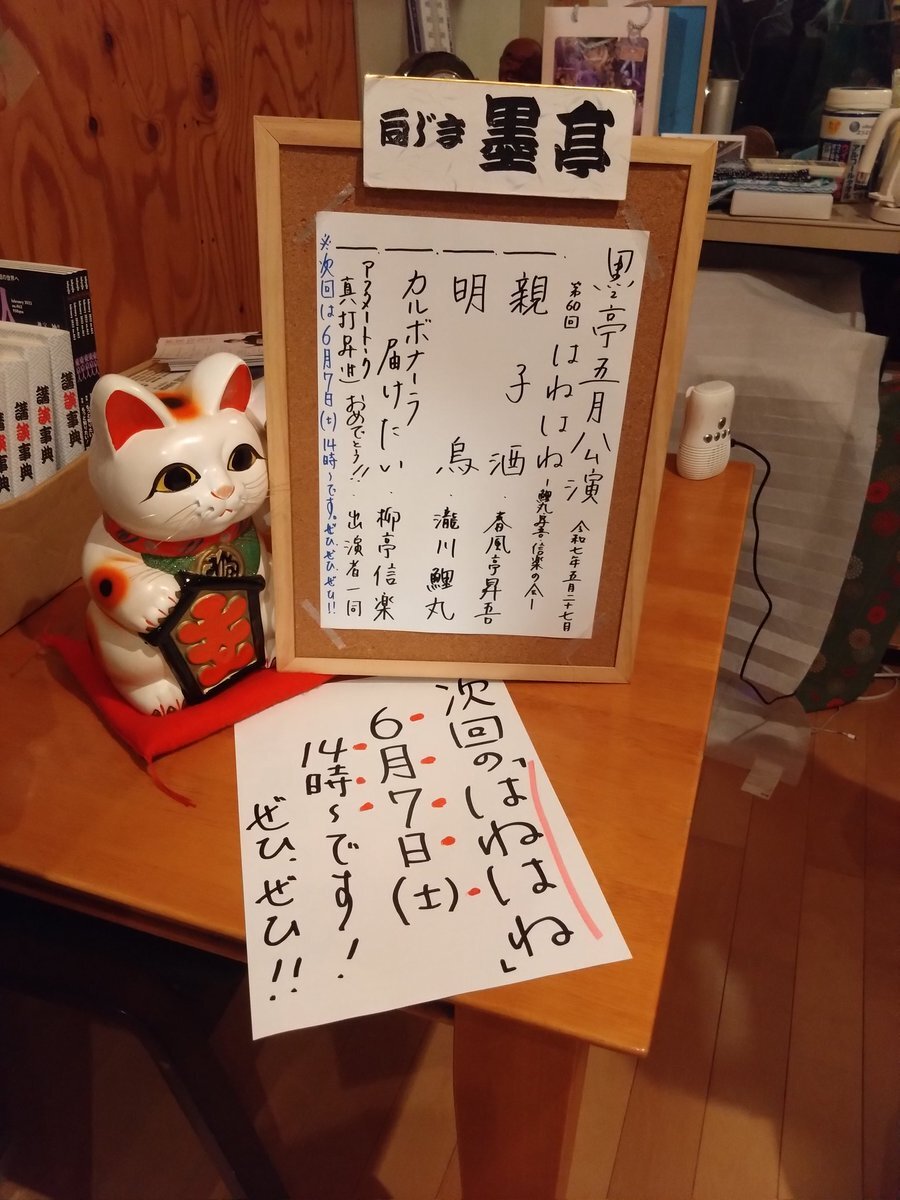 向じま 墨亭
墨亭五月公演 令和七年五月二十七日
第60回 はねはね ー鯉丸・昇吾・信楽の会ー
一、親子酒 · 春風亭昇吾
一、明烏 · 瀧川鯉丸
一、カルボナーラ届けたい · 柳亭信楽
一、アフタートーク 真打昇進おめでとう!! · 出演者一同
※次回は6月7日(土)14時~です。ぜひ、ぜひ、ぜひ!!
次回の「はねはね」
6月7日(土)
14時~です!
ぜひ、ぜひ!!
講談事典
講談事典
講談事典
講談事典